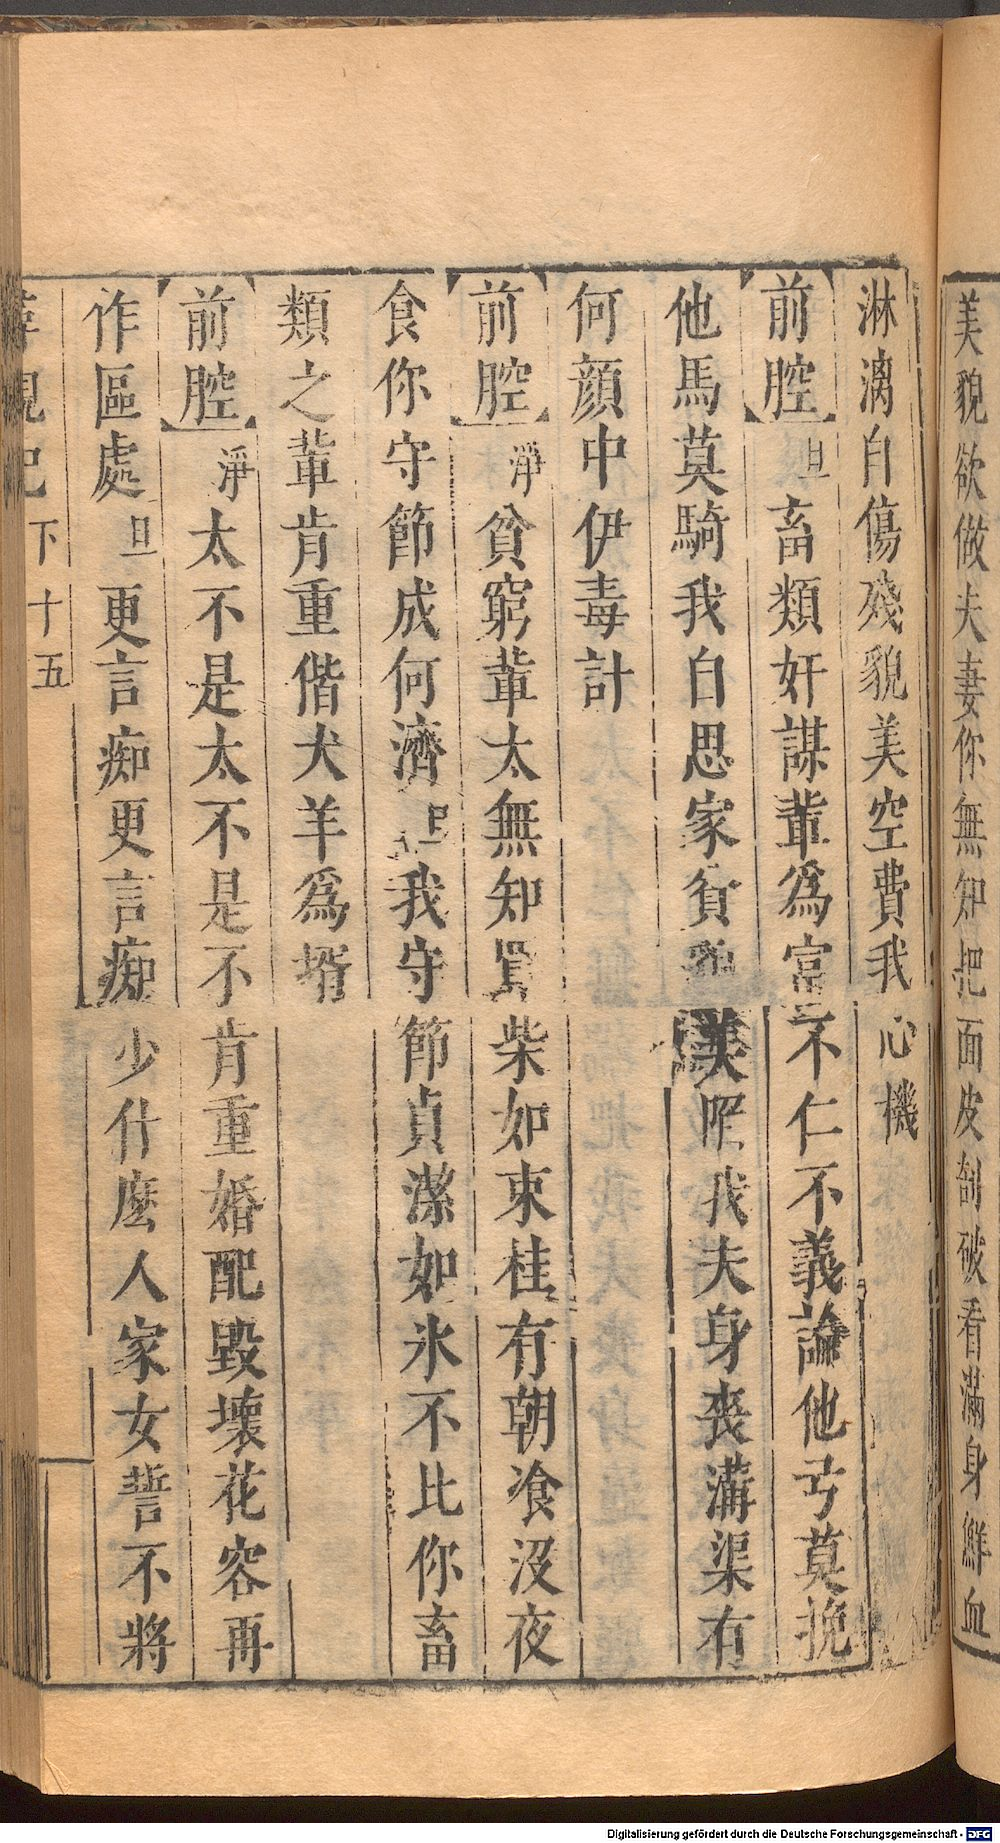 美貌欲做夫妻你無知把面皮刮破看滿身鮮血
淋漓自傷殘貌美空費我心機
前腔 旦 畜類奸謀輩爲富不仁不義論他弓莫挽
他馬莫騎我自思家貧貌美啀我夫身喪溝渠有
何顔中伊毒計
前腔 淨 貧窮輩太無知 柴如束桂有朝飡沒夜
食你守節成何濟 旦 我守節貞潔如氷不比你畜
類之輩肯重偕犬羊爲壻
前腔 淨 太不是太不是不肯重婚配毀壞花容再
作區處 旦 更言痴更言痴少什麽人家女誓不將
下 十五
Digitalisierung gefördert durch die Deutsche Forschungsgemeinschaft - DFG